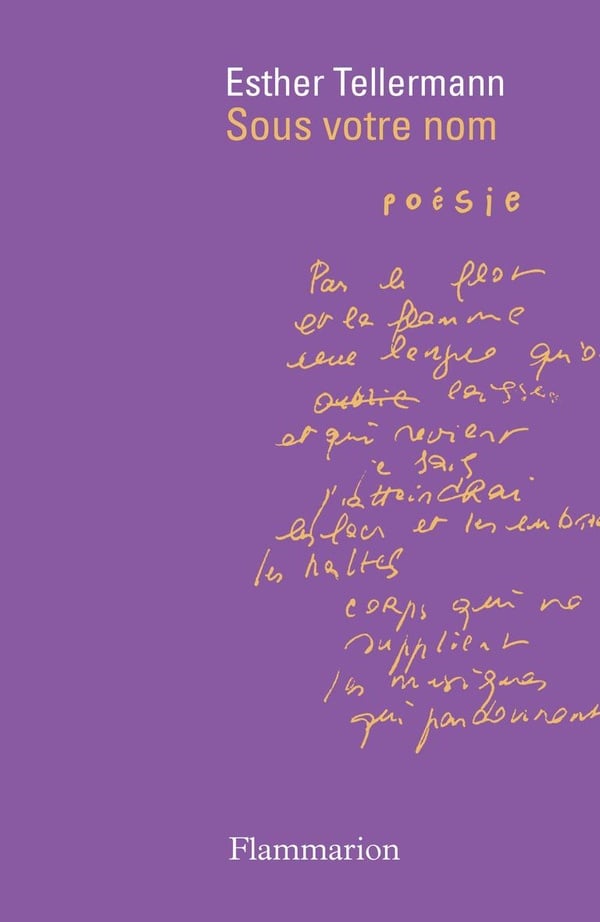 Esther Tellermann
Sous votre nom
poésie
Par le flot
et la flamme
une langue qu'o
oublie laissée
et qui revient
je sais
j'atteindrai
les lacs et les
les haltes
corps qui ne
supplient
les musiques
qui pardonnent
Flammarion